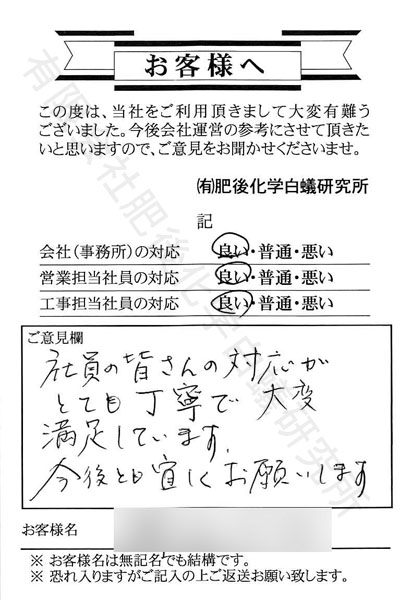 お客様へ
この度は、当社をご利用頂きまして大変有難う
ございました。今後会社運営の参考にさせて頂きた
いと思いますので、ご意見をお聞かせくださいませ。
㈲肥後化学白蟻研究所
記
会社(事務所)の対応 良い・普通・悪い
営業担当社員の対応 良い・普通・悪い
工事担当社員の対応 良い・普通・悪い
ご意見欄
社員の皆さんの対応が
とても丁寧で大変
満足しています.
今後とも宜しくお願いします
お客様名
※ お客様名は無記名でも結構です。
※ 恐れ入りますがご記入の上ご返送お願い致します。
有限会社肥後化学白蟻研究所